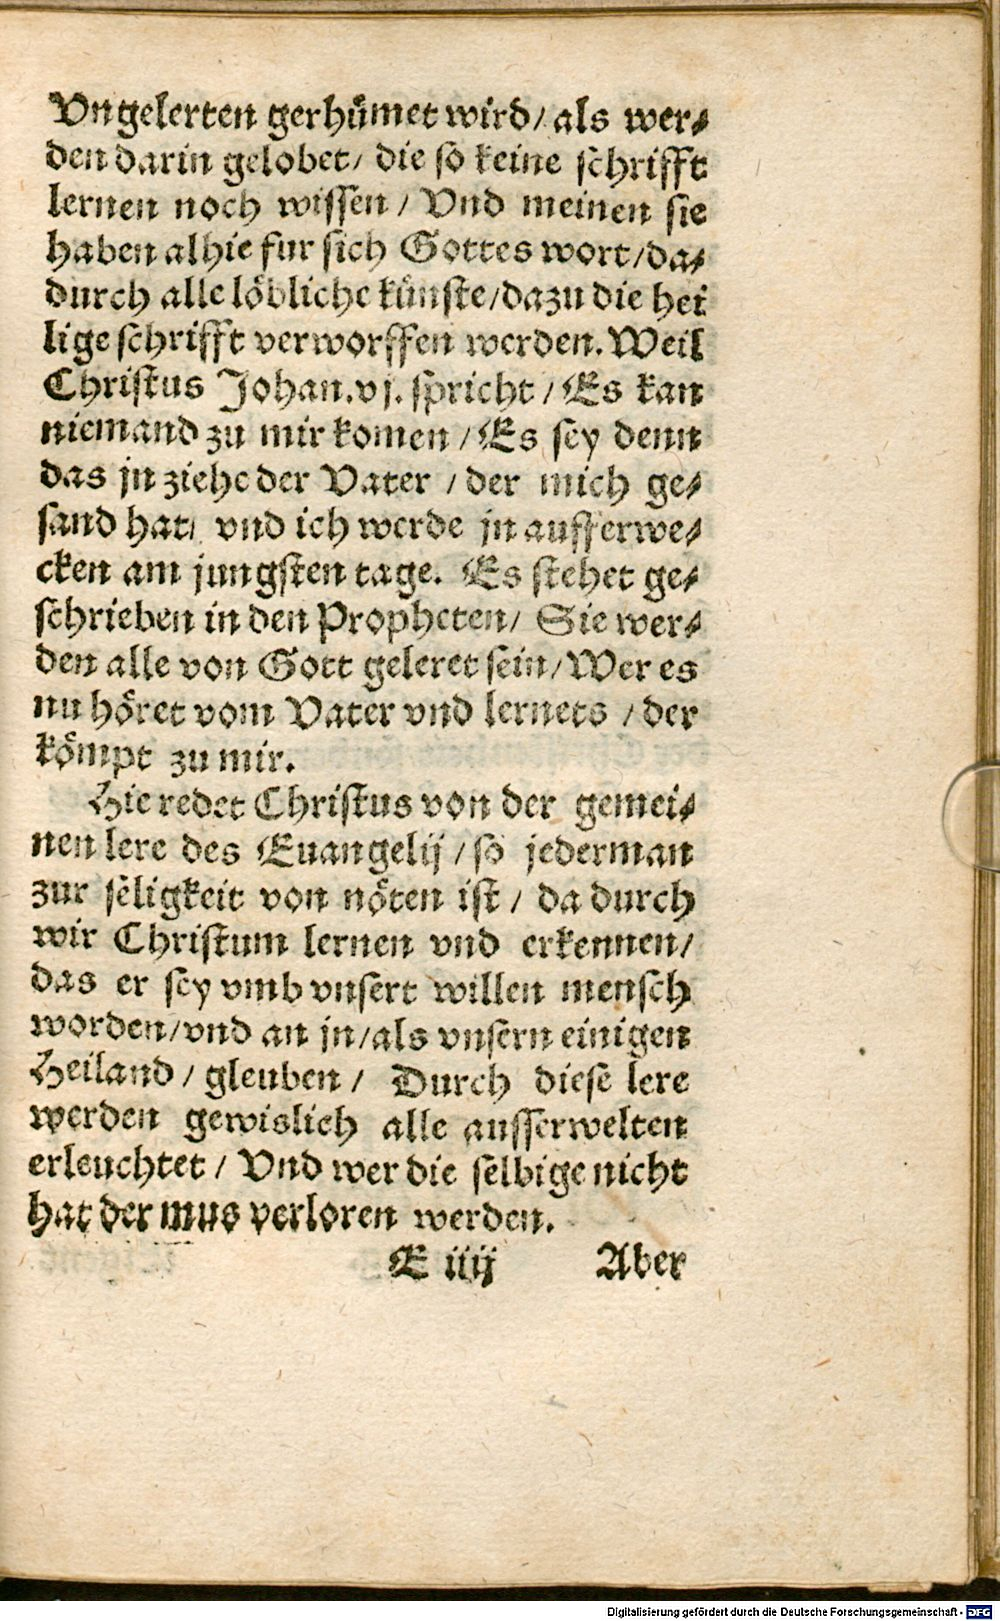 Vngelerten gerhümet wird/ als wer⸗
den darin gelobet/ die so keine schrifft
lernen noch wissen / Vnd meinen sie
haben alhie fur sich Gottes wort/da⸗
durch alle löbliche künste/dazu die hei
lige schrifft verworffen werden. Weil
Christus Johan.vj. spricht / Es kan
niemand zu mir komen / Es sey denn
das jn ziehe der Vater / der mich ge⸗
sand hat/ vnd ich werde jn aufferwe⸗
cken am jungsten tage. Es stehet ge⸗
schrieben in den Propheten/ Sie wer⸗
den alle von Gott geleret sein/ Wer es
nu höret vom Vater vnd lernets / der
kömpt zu mir.
Hie redet Christus von der gemei⸗
nen lere des Euangelij / so jederman
zur seligkeit von nöten ist / da durch
wir Christum lernen vnd erkennen/
das er sey vmb vnsert willen mensch
worden/vnd an jn/als vnsern einigen
Heiland / gleuben / Durch diese lere
werden gewislich alle ausserwelten
erleuchtet / Vnd wer die selbige nicht
hat der mus verloren werden.
E iiij Aber
Digitalisierung gefördert durch die Deutsche Forschungsgemeinschaft - DFG